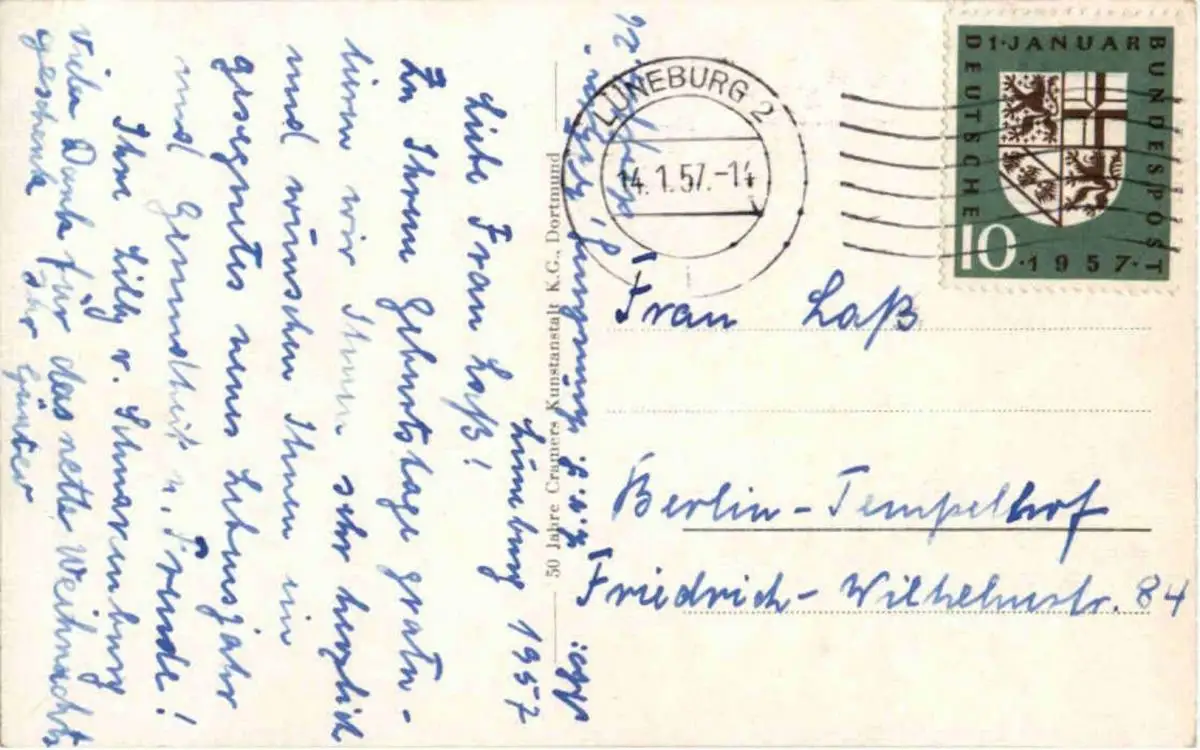 Lüneburg 1957
Liebe Frau Laß!
Zu Ihrem Geburtstage gratu-
lieren wir Ihnen sehr herzlich
und wünschen Ihnen ein
gesegnetes neues Lebensjahr
und Gesundheit u. Freude!
Ihre Lilly v. Schnakenburg
Vielen Dank für das nette Weihnachts
geschenk Ihr Günter
50 Jahre Cramers Kunstanstalt K.G., Dortmund
LÜNEBURG 2
14.1.57.-14
1·JANUAR
DEUTSCHE
BUNDESPOST
10
·1957·
Frau Laß
Berlin-Tempelhof
Friedrich-Wilhelmstr. 84